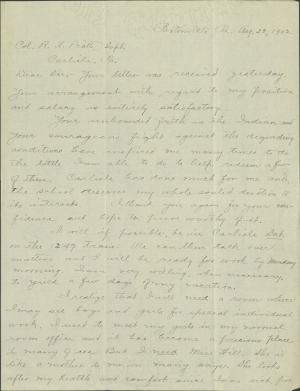 Pa. Aug. 28, 1902
Col. R. H. Pratt, Supt.
Carlisle, Pa.
Dear Sir: Your letter was received yesterday.
Your arrangement with regard to my position
and salary is entirely satisfactory.
Your unbounded faith in the Indian and
your courageous fight against the degrading
conditions have inspired me many times to do
the little I am able to do to help redeem a few
of them. Carlisle has done much for me and
the school deserves my whole souled devotion to
its interests. I thank you again for your con-
fidence and hope to prove worthy of it.
I will if possible, be in Carlisle Sat.
on the 2:49 train. We can then talk over
matters and I will be ready for work by Monday
morning. I am very willing, when necessary,
to yield a few days of my vacation.
I realize that I will need a room where
I may see boys and girls for special individual
work. I used to meet my girls in my normal
room office and it has become a precious place
to many of us. But I need Miss Hill. She is
like a mother to me in many ways. She looks
after my health and comfort since I am not for